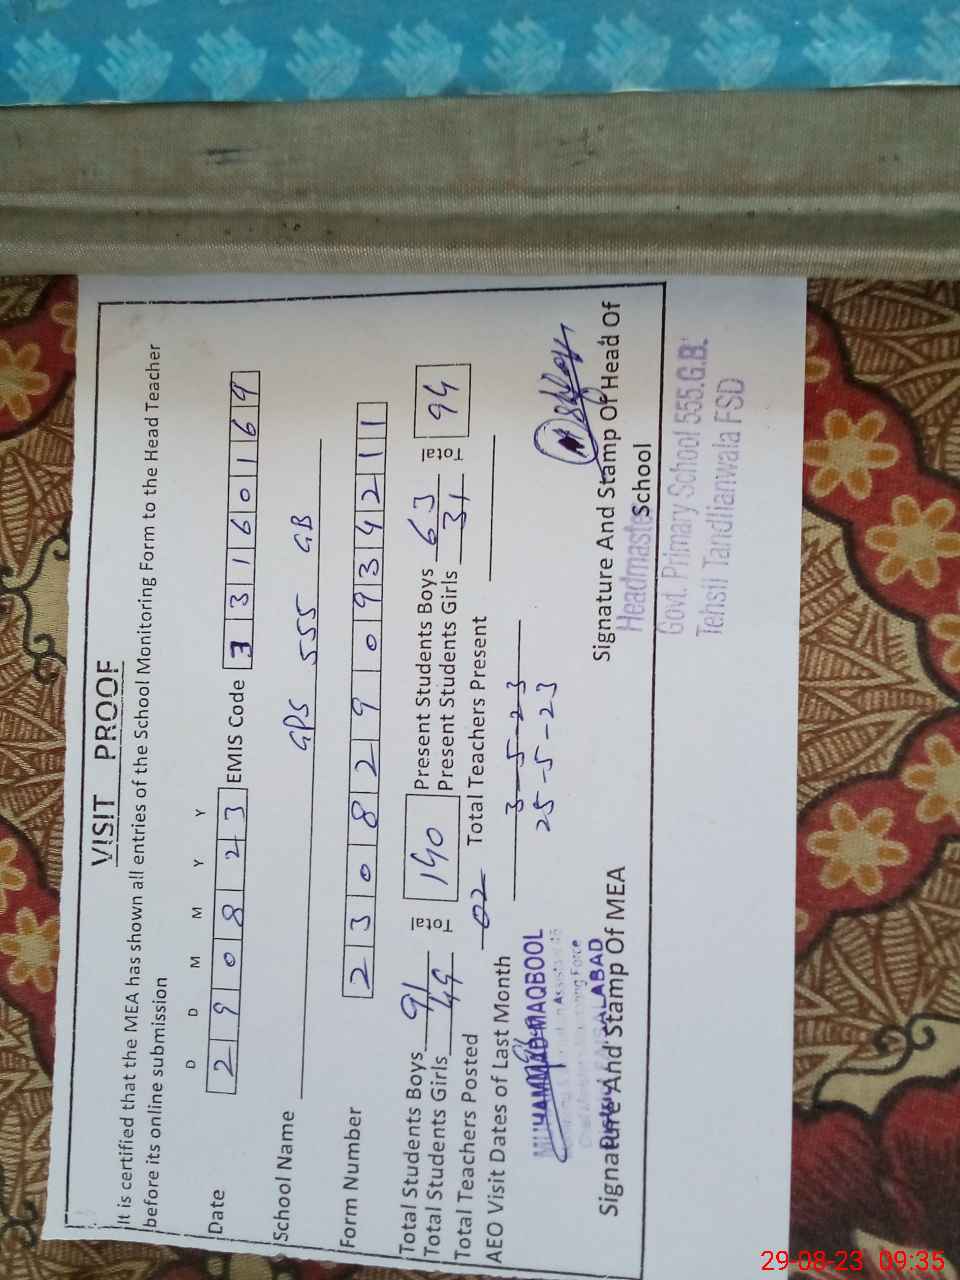 VISIT PROOF
It is certified that the MEA has shown all entries of the School Monitoring Form to the Head Teacher
before its online submission
D D M M Y Y
Date 2 9 0 8 2 3 EMIS Code 3 3 1 6 0 1 6 9
School Name GPS 555 GB
Form Number 2 3 0 8 2 9 0 9 3 4 2 1 1
Total Students Boys 91 Total 140 Present Students Boys 63 Total 94
Total Students Girls 49 Present Students Girls 31
Total Teachers Posted 02 Total Teachers Present
AEO Visit Dates of Last Month 3-5-23
25-5-23
MUHAMMAD MAQBOOL
FAISALABAD
Signature And Stamp Of MEA
Signature And Stamp Of Head Of
School
Headmaster
Govt. Primary School 555.G.B.
Tehsil Tandlianwala FSD
29-08-23 09:35